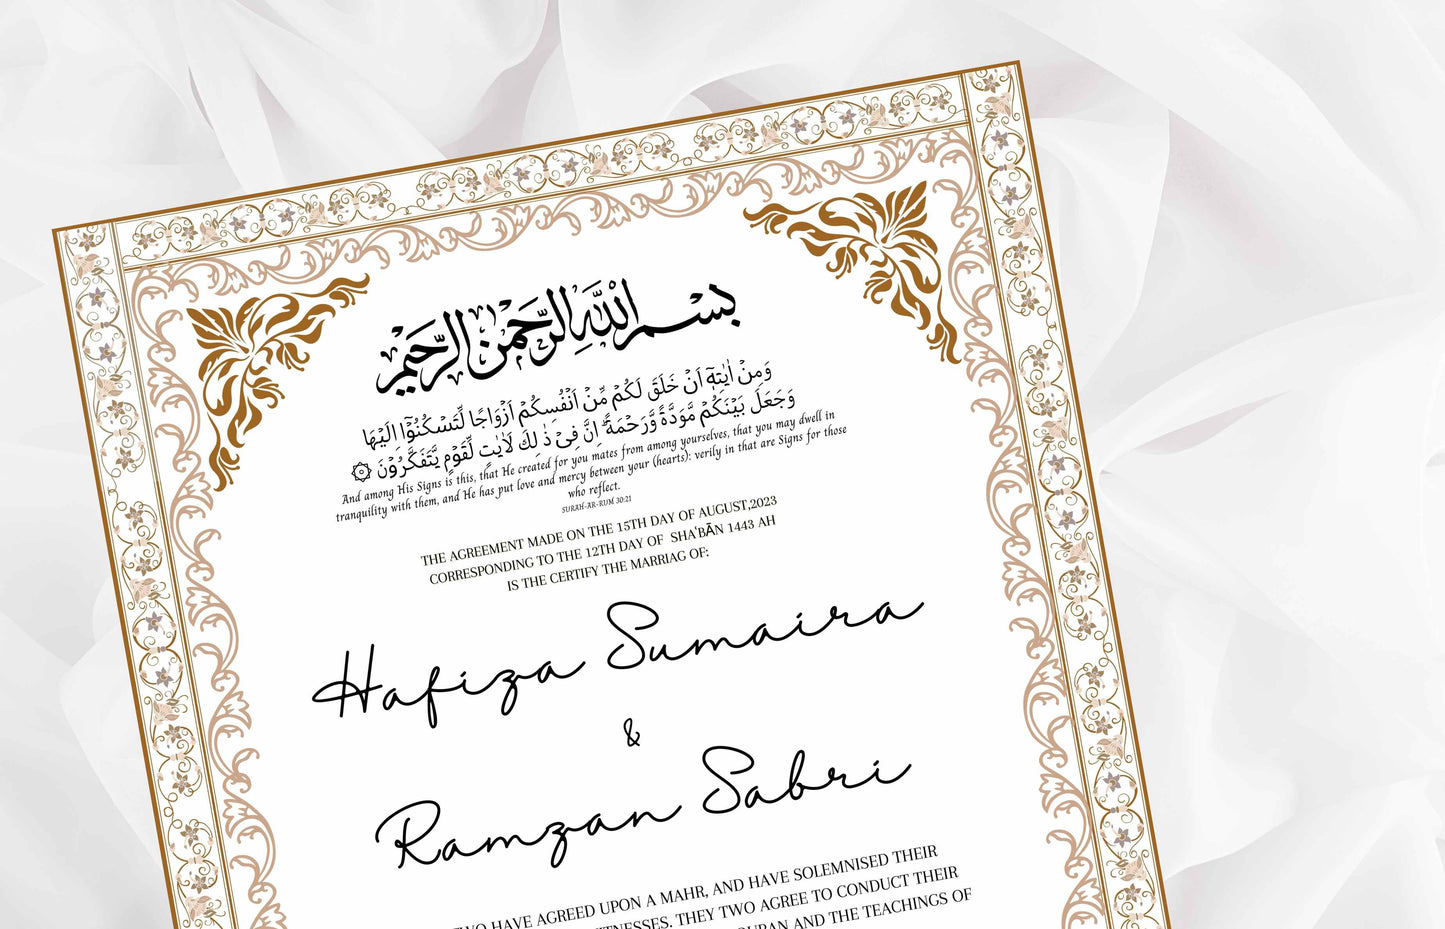 بِسْمِ اللَّهِ الرَّحْمٰنِ الرَّحِيْمِ
وَمِنْ اٰيٰتِهٖٓ اَنْ خَلَقَ لَكُمْ مِّنْ اَنْفُسِكُمْ اَزْوَاجًا لِّتَسْكُنُوْٓا اِلَيْهَا
وَجَعَلَ بَيْنَكُمْ مَّوَدَّةً وَّرَحْمَةً ۗاِنَّ فِيْ ذٰلِكَ لَاٰيٰتٍ لِّقَوْمٍ يَّتَفَكَّرُوْنَ ۞
And among His Signs is this, that He created for you mates from among yourselves, that you may dwell in
tranquility with them, and He has put love and mercy between your (hearts): verily in that are Signs for those
who reflect.
SURAH-AR-RUM 30:21
THE AGREEMENT MADE ON THE 15TH DAY OF AUGUST,2023
CORRESPONDING TO THE 12TH DAY OF SHA'BĀN 1443 AH
IS THE CERTIFY THE MARRIAG OF:
Hafiza Sumaira
&
Ramzan Sabri
TWO HAVE AGREED UPON A MAHR, AND HAVE SOLEMNISED THEIR
THEY TWO AGREE TO CONDUCT THEIR
AND THE TEACHINGS OF